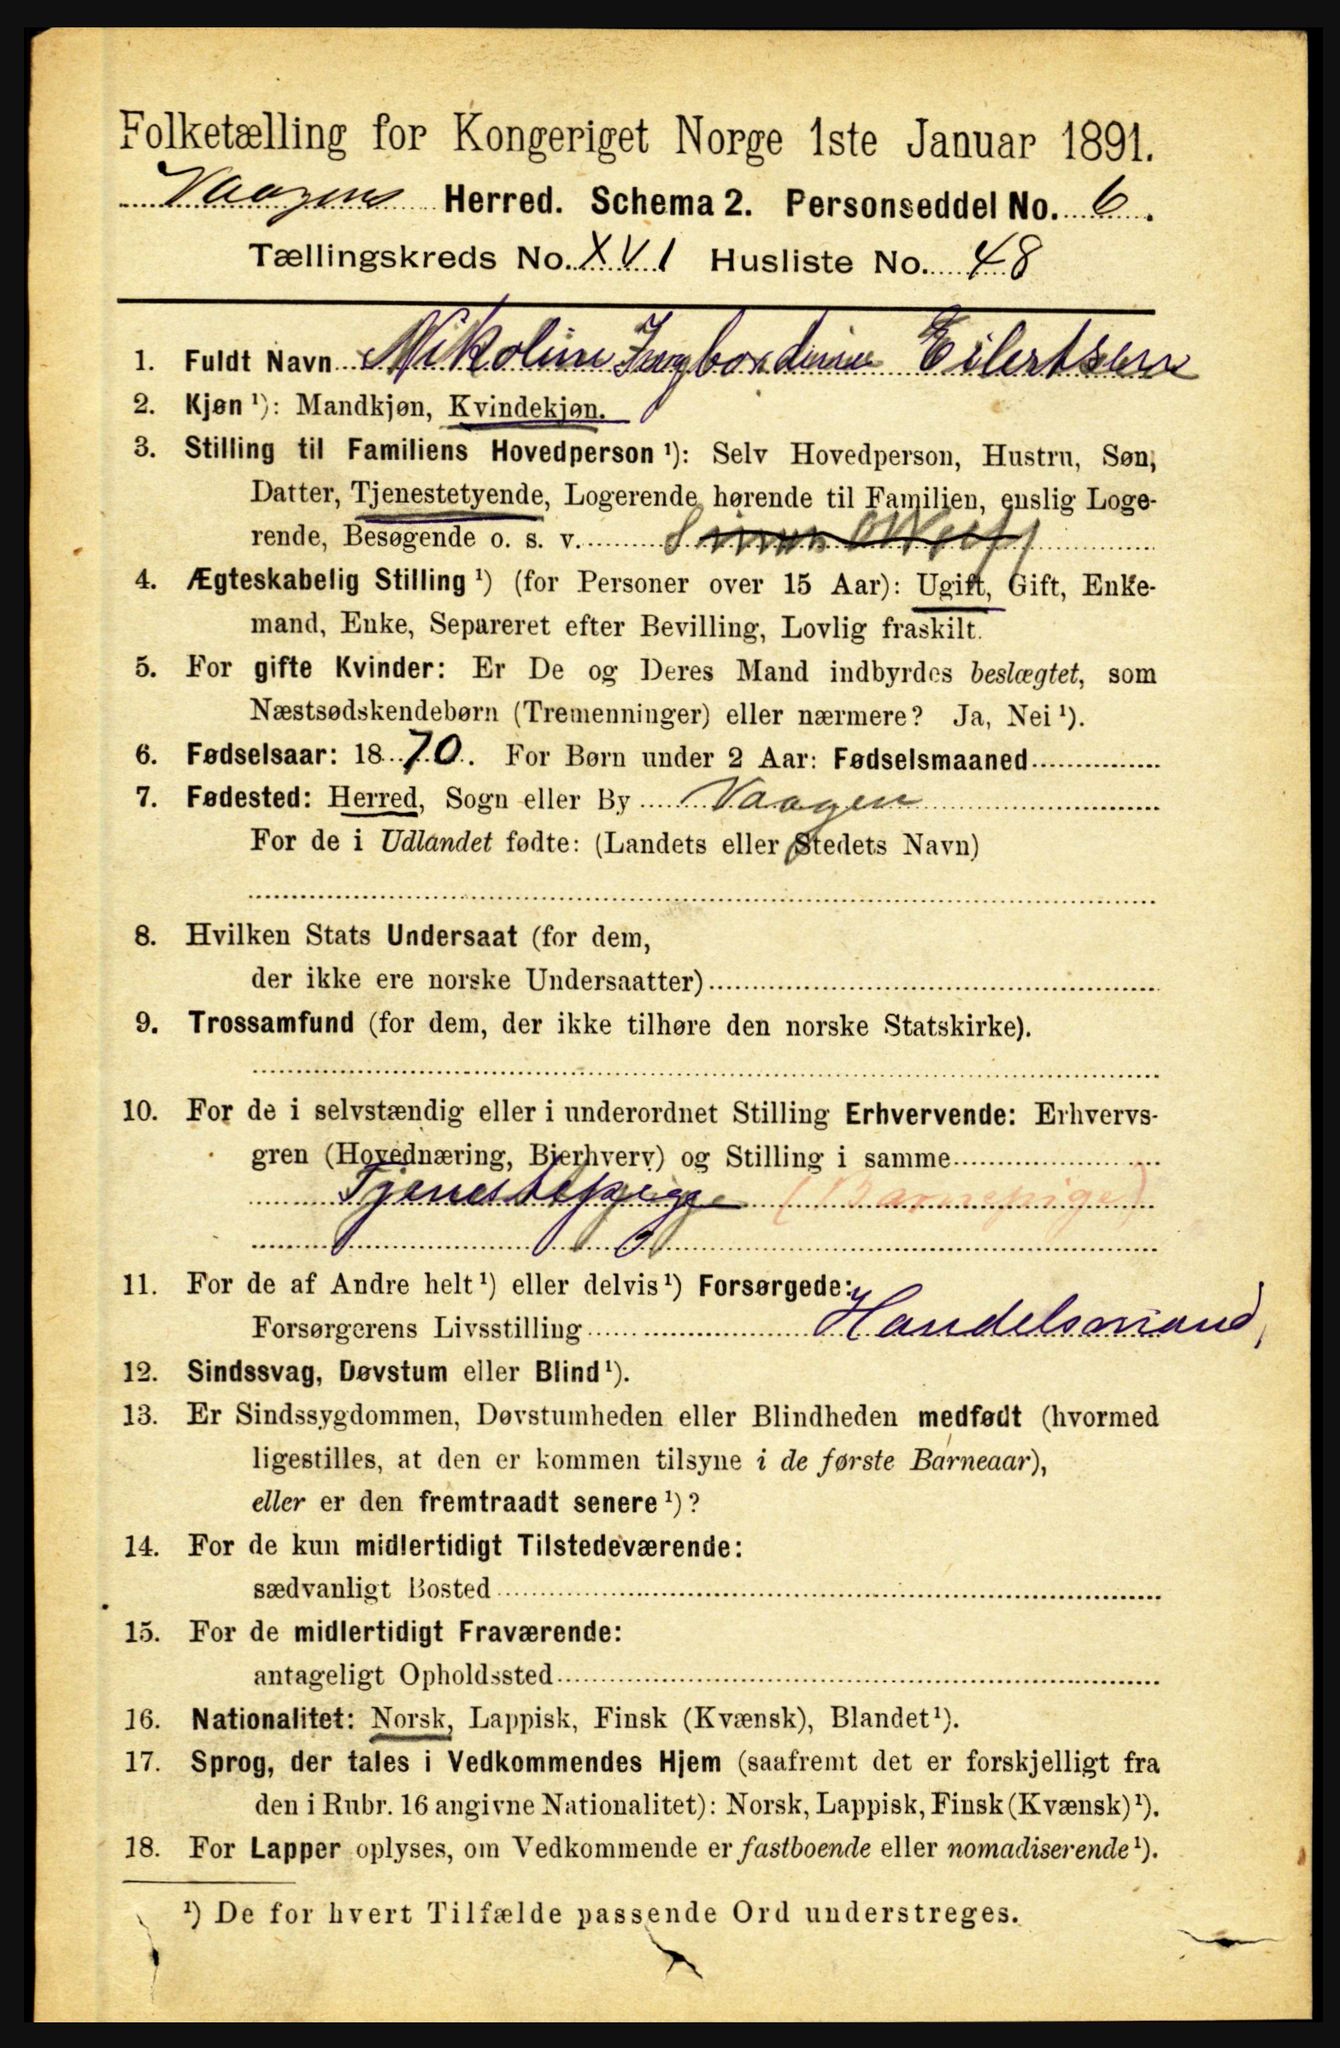 Folketælling for Kongeriget Norge 1ste Januar 1891.
Vaagens Herred. Schema 2. Personseddel No. 6.
Tællingskreds No. XVI Husliste No. 48
1. Fuldt Navn Nikoline Eilertsen
2. Kjøn ¹): Mandkjøn, Kvindekjøn.
3. Stilling til Familiens Hovedperson ¹): Selv Hovedperson, Hustru, Søn,
Datter, Tjenestetyende, Logerende hørende til Familien, enslig Loge-
rende, Besøgende o. s. v.
4. Ægteskabelig Stilling ¹) (for Personer over 15 Aar): Ugift, Gift, Enke-
mand, Enke, Separeret efter Bevilling, Lovlig fraskilt.
5. For gifte Kvinder: Er De og Deres Mand indbyrdes beslægtet, som
Næstsødskendebørn (Tremenninger) eller nærmere? Ja, Nei ¹).
6. Fødselsaar: 1870. For Børn under 2 Aar: Fødselsmaaned
7. Fødested: Herred, Sogn eller By Vaagen
For de i Udlandet fødte: (Landets eller Stedets Navn)
8. Hvilken Stats Undersaat (for dem,
der ikke ere norske Undersaatter)
9. Trossamfund (for dem, der ikke tilhøre den norske Statskirke).
10. For de i selvstændig eller i underordnet Stilling Erhvervende: Erhvervs-
gren (Hovednæring, Bierhverv) og Stilling i samme
Tjenestepige (Barnepige)
11. For de af Andre helt ¹) eller delvis ¹) Forsørgede:
Forsørgerens Livsstilling Handelsmand,
12. Sindssvag, Døvstum eller Blind ¹).
13. Er Sindssygdommen, Døvstumheden eller Blindheden medfødt (hvormed
ligestilles, at den er kommen tilsyne i de første Barneaar),
eller er den fremtraadt senere ¹)?
14. For de kun midlertidigt Tilstedeværende:
sædvanligt Bosted
15. For de midlertidigt Fraværende:
antageligt Opholdssted
16. Nationalitet: Norsk, Lappisk, Finsk (Kvænsk), Blandet ¹).
17. Sprog, der tales i Vedkommendes Hjem (saafremt det er forskjelligt fra
den i Rubr. 16 angivne Nationalitet): Norsk, Lappisk, Finsk (Kvænsk) ¹).
18. For Lapper oplyses, om Vedkommende er fastboende eller nomadiserende ¹).
¹) De for hvert Tilfælde passende Ord understreges.